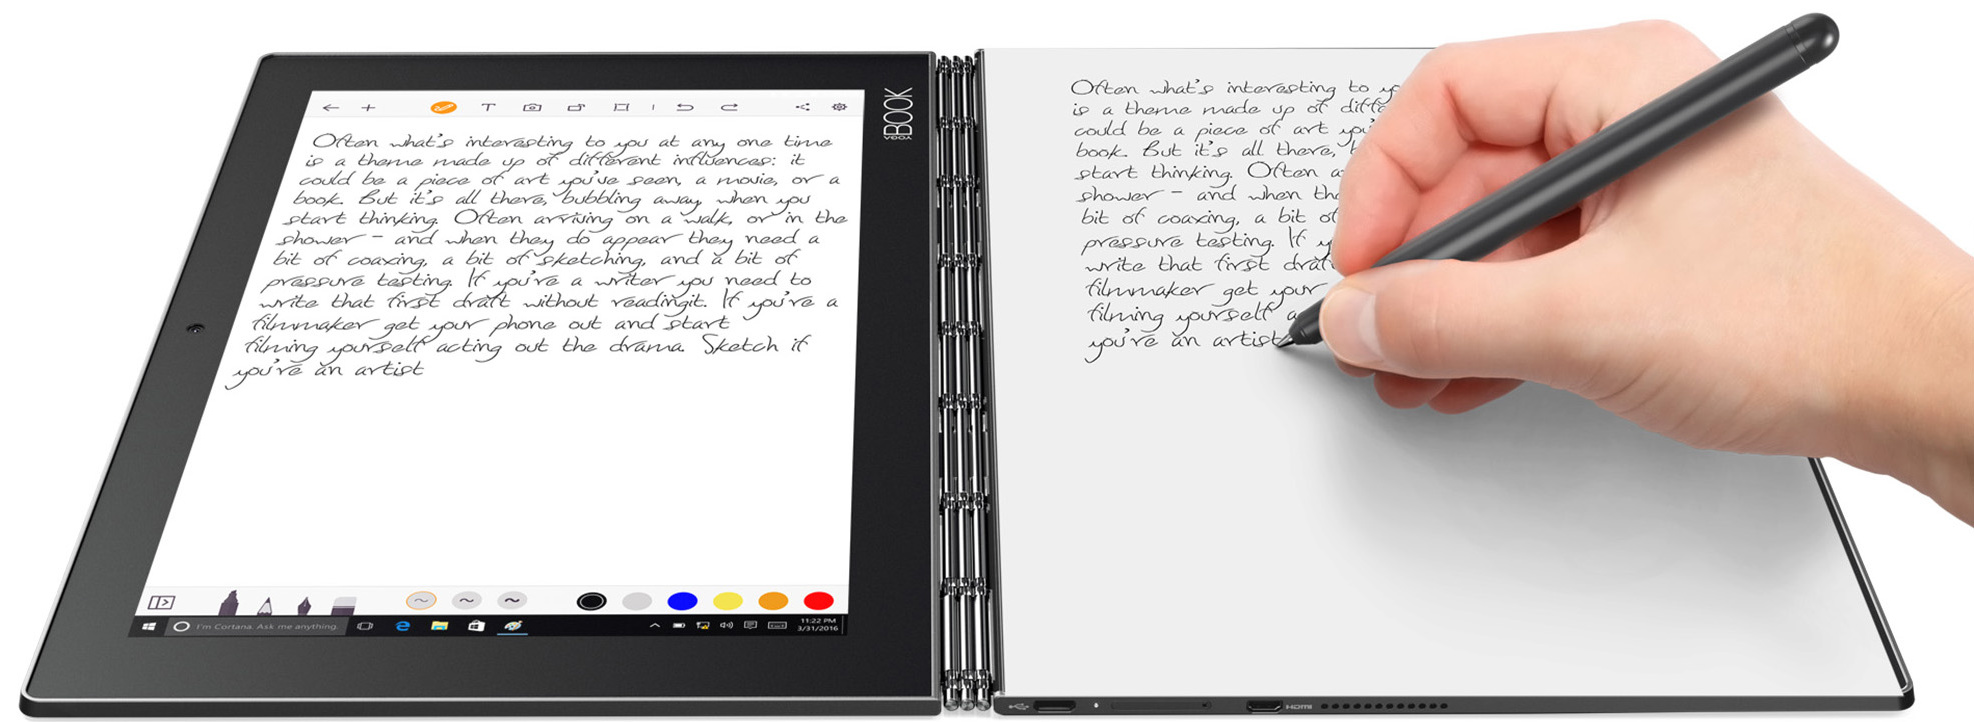 Often what's interesting to you at any one time
is a theme made up of different influences: it
could be a piece of art you've seen, a movie, or a
book. But it's all there, bubbling away, when you
start thinking. Often arriving on a walk, or in the
shower - and when they do appear they need a
bit of coaxing, a bit of sketching, and a bit of
pressure testing. If you're a writer you need to
write that first draft without readingit. If you're a
filmmaker get your phone out and start
filming yourself acting out the drama. Sketch if
you're an artist
I'm Cortana. Ask me anything.
11:22 PM
3/31/2016
YOGA BOOK
Often what's interesting to yo
is a theme made up of diffe
could be a piece of art you'
book. But it's all there,
start thinking. Often a
shower - and when the
bit of coaxing, a bit of
pressure testing. If y
write that first draft
filmmaker get your
filming yourself a
you're an artist
HDMI